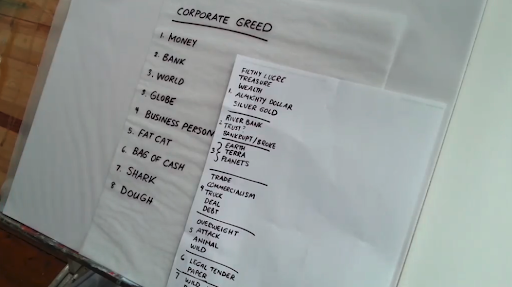 CORPORATE GREED
1. MONEY
2. BANK
3. WORLD
3. GLOBE
4 BUSINESS PERSON
5. FAT CAT
6. BAG OF CASH
7. SHARK
8 DOUGH
FILTHY LUCRE
TREASURE
WEALTH
1. ALMIGHTY DOLLAR
SILVER GOLD
RIVER BANK
2 TRUST?
BANKRUPT/BROKE
EARTH
3 TERRA
PLANETS
TRADE
4 COMMERCIALISM
TRUCK
DEAL
DEBT
OVERWEIGHT
5 ATTACK
ANIMAL
WILD
6 LEGAL TENDER
PAPER
7 WILD